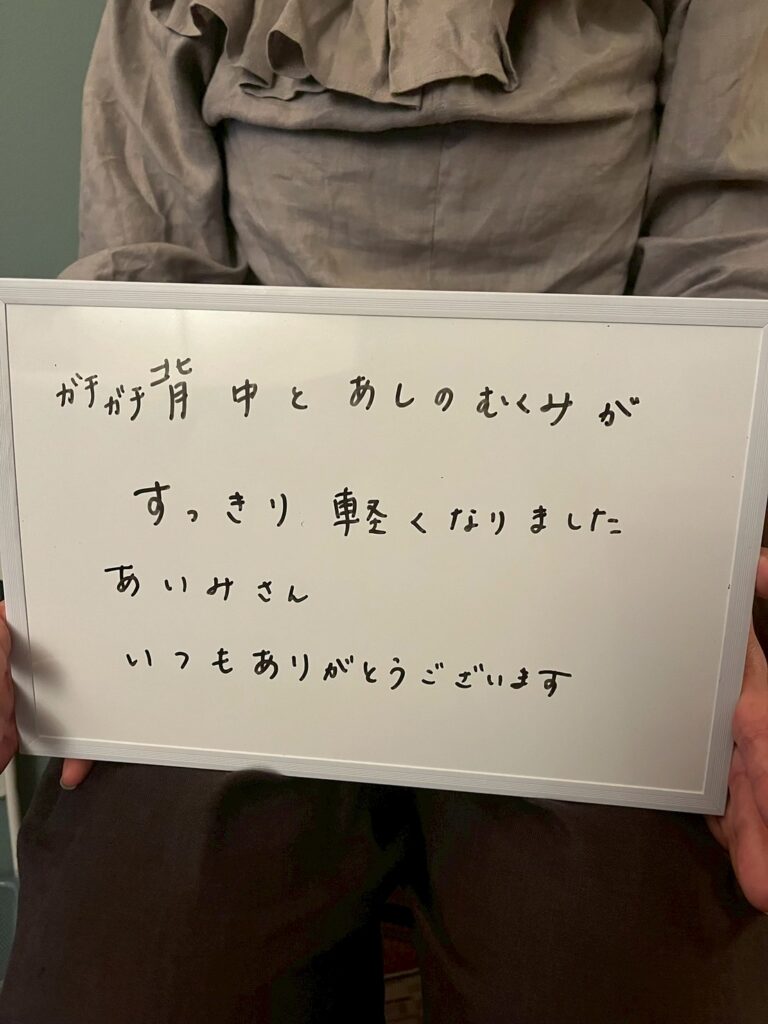 ガチガチ背中とあしのむくみが
すっきり軽くなりました
あいみさん
いつもありがとうございます